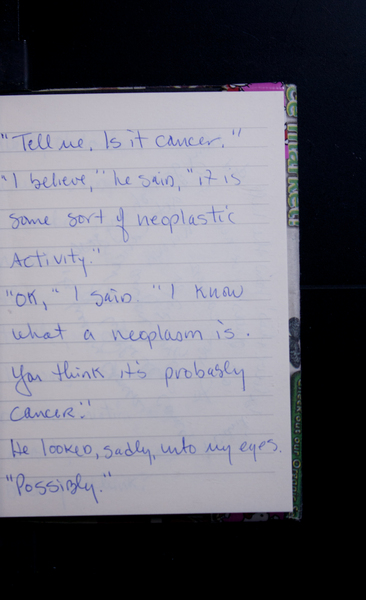 "Tell me. Is it cancer."
"I believe," he said, "it is
some sort of neoplastic
Activity."
"OK," I said. "I know
what a neoplasm is.
You think it's probably
cancer."
He looked, sadly, into my eyes.
"Possibly."